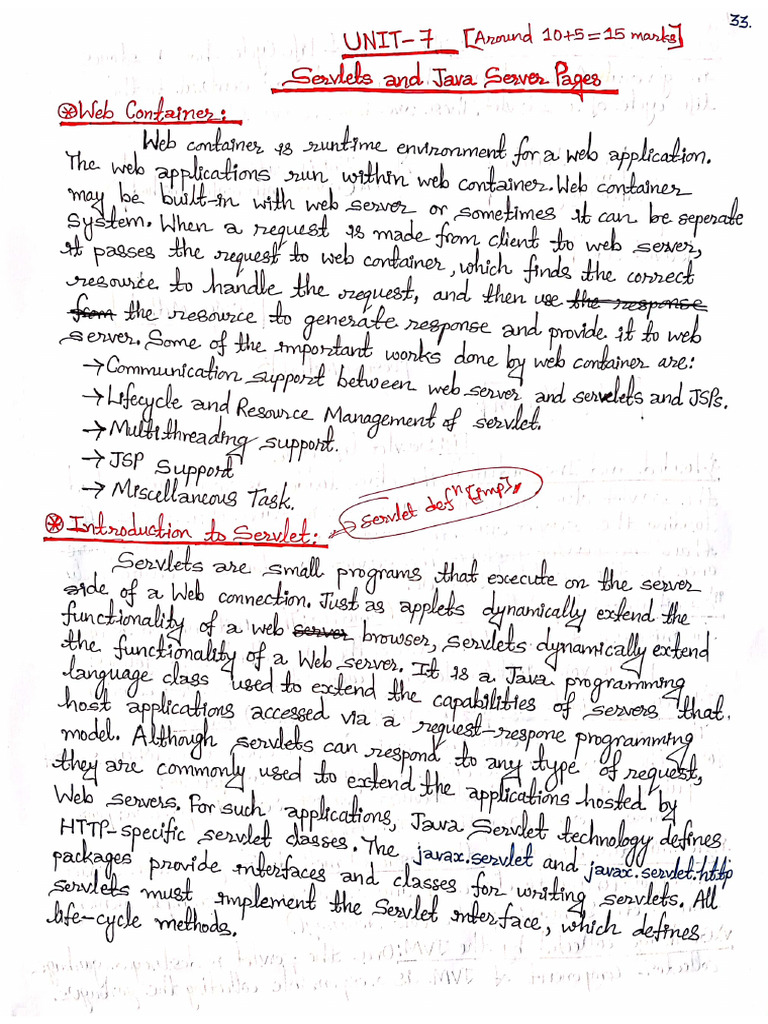 33.
UNIT-7 [Around 10+5=15 marks]
Servlets and Java Server Pages
⊛Web Container:
Web container is runtime environment for a web application.
The web applications run within web container. Web container
may be built-in with web server or sometimes it can be seperate
system. When a request is made from client to web server,
it passes the request to web container, which finds the correct
resource to handle the request, and then use the response
from the resource to generate response and provide it to web
server. Some of the important works done by web container are:
→Communication support between web server and servelets and JSPs.
→Lifecycle and Resource Management of servlet.
→Multithreading support.
→JSP Support
→Miscellaneous Task.
⊛Introduction to Servlet: → servlet defⁿ [imp].
Servlets are small programs that execute on the server
side of a Web connection. Just as applets dynamically extend the
functionality of a web server browser, servlets dynamically extend
the functionality of a Web server. It is a Java programming
language class used to extend the capabilities of servers that
host applications accessed via a request-respone programming
model. Although servlets can respond to any type of request,
they are commonly used to extend the applications hosted by
Web servers. For such applications, Java Servlet technology defines
HTTP-specific servlet classes. The javax.servlet and javax.servlet.http
packages provide interfaces and classes for writing servlets. All
servlets must implement the Servlet interface, which defines
life-cycle methods.